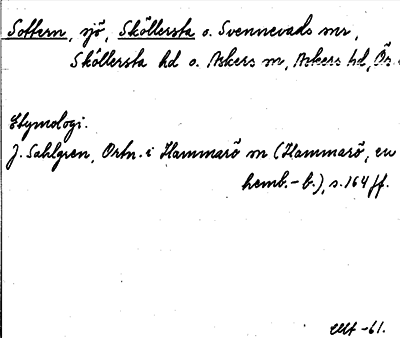 Sottern, sjö, Sköllersta o. Svennevads snr,
Sköllersta hd o. Askers sn, Askers hd, Ör.
Etymologi.
J. Sahlgren, Ortn. i Hammarö sn (Hammarö, en
hemb.-b.), s. 164 ff.
-61.